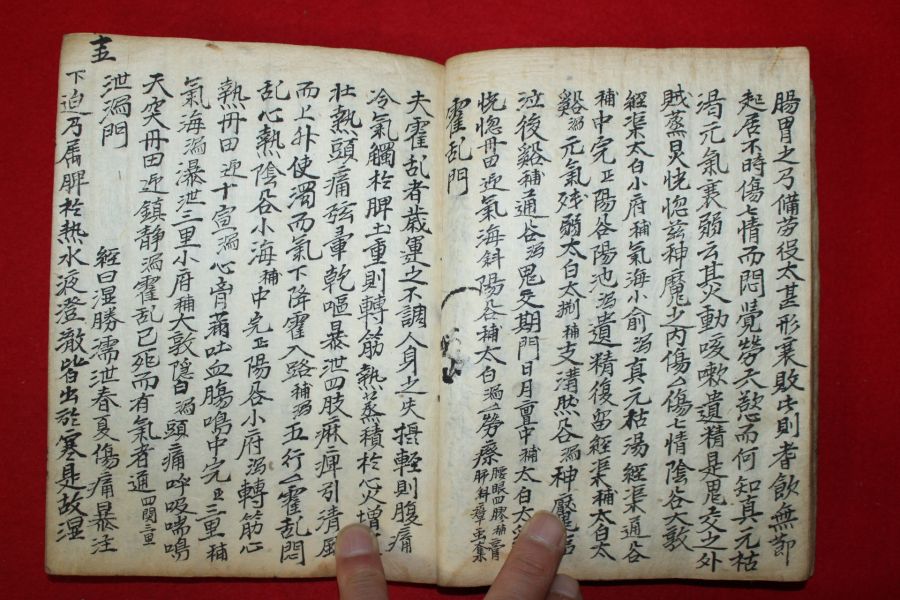 腸胃之乃備勞役太甚形衰敗此則耆飮無節
起居不時傷七情而悶覺勞天慾而何知真元枯
渴元氣衰弱云其火動咳嗽遺精是鬼交之外
賊蒸炅恍惚玆神魔之內傷亽傷七情陰谷大敦
經渠太白小府補氣海小俞瀉真元枯湯經渠通谷
補中完正陽谷陽池瀉遺精後留經渠補太白太
谿瀉元氣殘弱太白太
補支溝然谷瀉神
泣後谿補通谷瀉鬼交期門日月亶中補太白太
恍惚丹田迎氣海斜陽谷補太白瀉勞瘵
霍乱門
夫霍乱者歲運之不調人身之失攝輕則腹痛
冷氣觸於脾土重則轉筋熱蒸積於心火增
壯熱頭痛弦暈乾嘔暴泄四肢麻痺引清
而上升使濁而氣下降霍入路補瀉五行霍乱悶
乱心熱陰谷小海補中完正陽谷小府瀉轉筋心
熱丹田迎十宣瀉心
吐血腸鳴中完正三里補
氣海瀉瀑泄三里小府補大敦隱白瀉頭痛呼吸喘鳴
天突丹田迎鎮靜瀉霍乱已死而有氣者通四関三里
泄瀉門
經曰湿勝濡泄春夏傷痛暴注
下迫乃属脾於熱水液澄澈皆出於寒是故湿